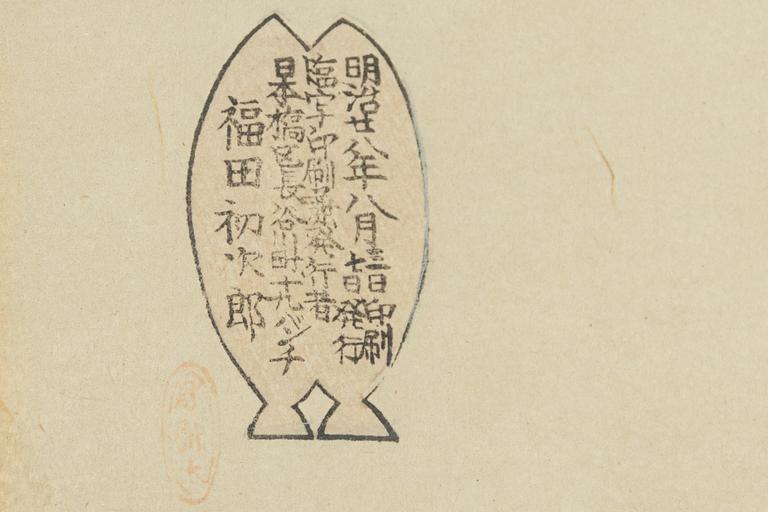 明治廿八年八月
三日印刷
七日発行
臨写印刷兼発行者
日本橋区長谷川町十九バンチ
福田初次郎